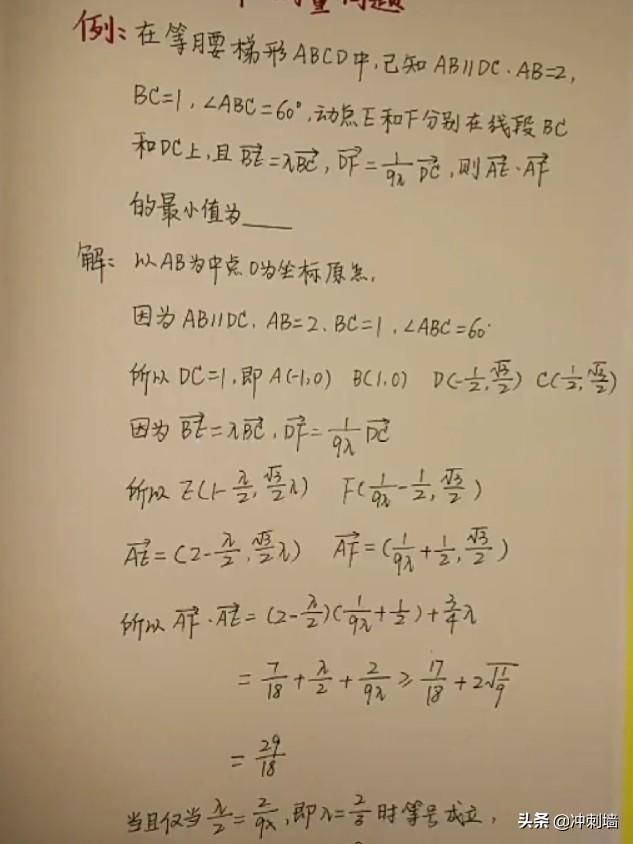 例:在等腰梯形ABCD中,已知AB∥DC.AB=2,
BC=1,∠ABC=60°,动点E和F分别在线段BC
和DC上,且 \overrightarrow{BE}=λ\overrightarrow{BC},\overrightarrow{DF}=\frac{1}{9λ}\overrightarrow{DC},则\overrightarrow{AE}·\overrightarrow{AF}
的最小值为____
解:以AB为中点O为坐标原点,
因为AB∥DC、AB=2、BC=1,∠ABC=60°
所以DC=1,即A(-1,0) B(1,0) D(-\frac{1}{2},\frac{√3}{2}) C(\frac{1}{2},\frac{√3}{2})
因为 \overrightarrow{BE}=λ\overrightarrow{BC},\overrightarrow{DF}=\frac{1}{9λ}\overrightarrow{DC}
所以E(1-\frac{λ}{2},\frac{√3}{2}λ) F(\frac{1}{9λ}-\frac{1}{2},\frac{√3}{2})
\overrightarrow{AE}=(2-\frac{λ}{2},\frac{√3}{2}λ) \overrightarrow{AF}=(\frac{1}{9λ}+\frac{1}{2},\frac{√3}{2})
所以\overrightarrow{AF}·\overrightarrow{AE}=(2-\frac{λ}{2})(\frac{1}{9λ}+\frac{1}{2})+\frac{3}{4}λ
=\frac{7}{18}+\frac{λ}{2}+\frac{2}{9λ}≥\frac{17}{18}+2\sqrt{\frac{1}{9}}
=\frac{29}{18}
当且仅当\frac{λ}{2}=\frac{2}{9λ},即λ=\frac{2}{3}时等号成立,
头条 @冲刺墙